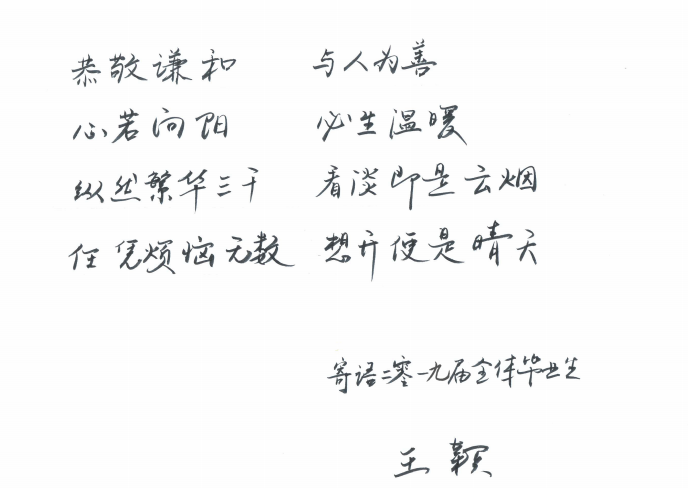 恭敬谦和 与人为善
心若向阳 必生温暖
纵然繁华三千 看淡即是云烟
任凭烦恼无数 想开便是晴天
寄语二零一九届全体毕业生
王颖